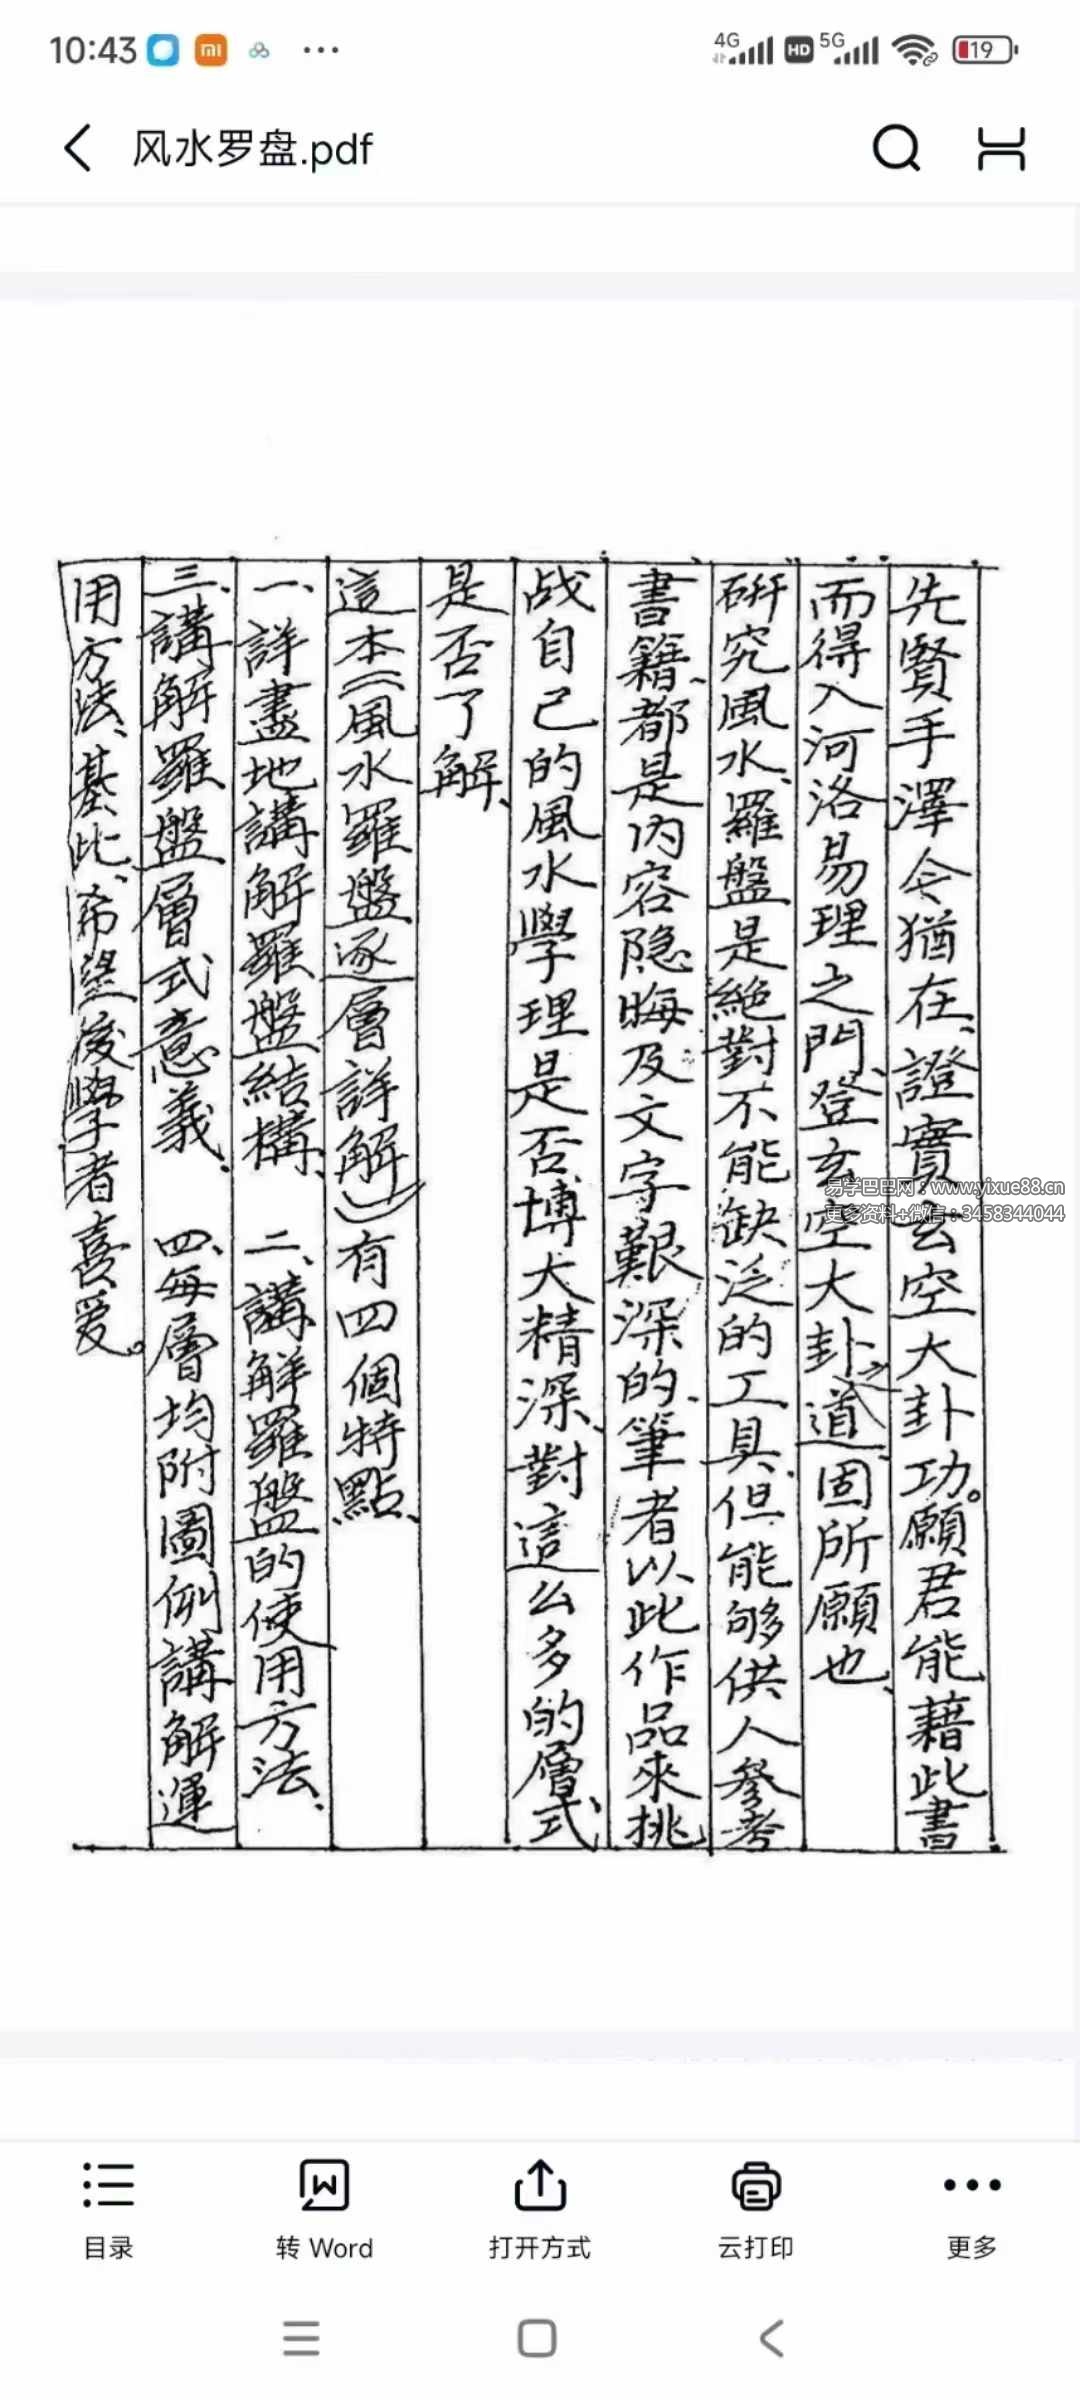 10:43
4G
HD
5G
19
风水罗盘.pdf
先賢手澤今猶在、證實玄空大卦功。願君能藉此書
而得入河洛易理之門、登玄空大卦之道、固所願也、
研究風水、羅盤是絶對不能缺泛的工具、但能够供人參考
書籍、都是内容隐晦及文字艱深的、筆者以此作品來挑
战自己的風水學理是否博大精深、對這么多的層式、
是否了解、
這本《風水羅盤逐層詳解》有四個特點、
一、詳盡地講解羅盤結構、 二、講解羅盤的使用方法、
三、講解羅盤層式意義、 四、每層均附圖例講解運
用方法、基此、希望後學者喜爱。
易学巴巴网：www.yixue88.cn
更多资料+微信：3458344044
目录
转 Word
打开方式
云打印
更多